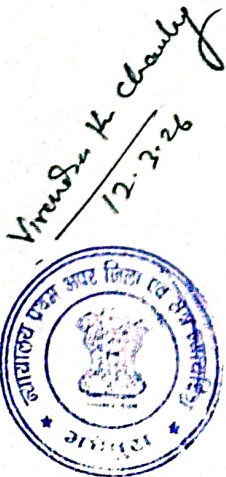 Virendra Kr Choubey
12.3.26
न्यायालय प्रथम अपर जिला एवं सत्र न्यायाधीश